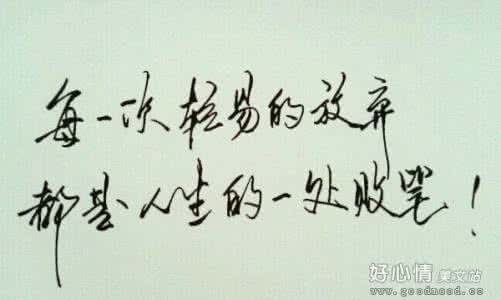 每一次轻易的放弃
都是人生的一处败笔!
好心情美文站
www.goodmood.cc